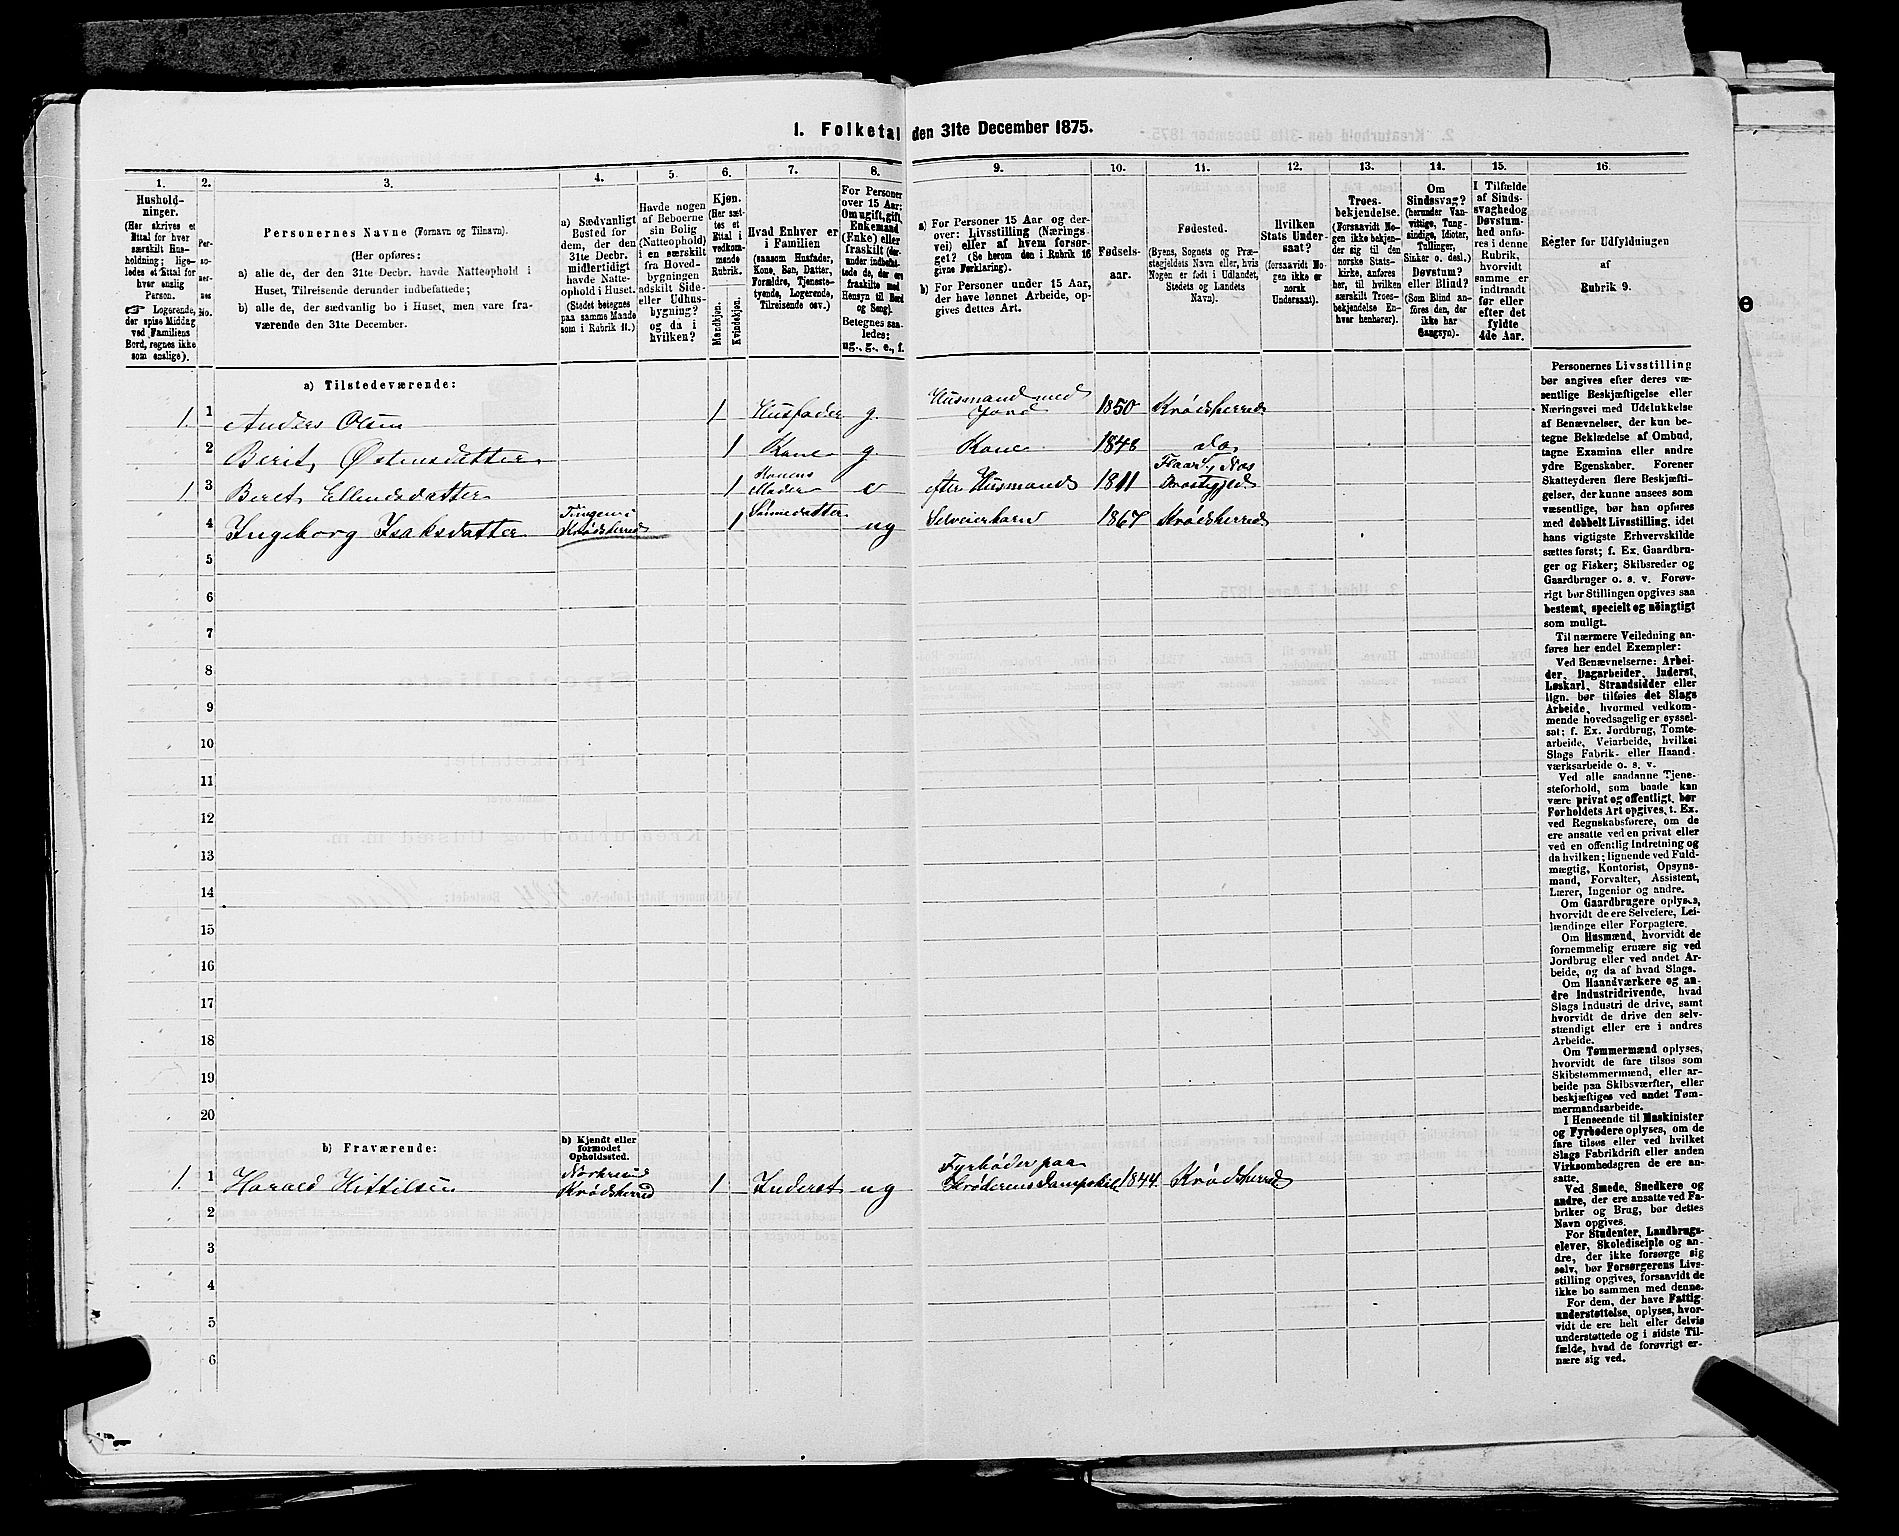 1. Folketal den 31te December 1875.
1.
Hushold-
ninger.
(Her skrives et
Ettal for hver
særskilt Hus-
holdning; lige-
ledes et Ettal for
hver enslig
Person.
Logerende,
der spise Middag
ved Familiens
Bord, regnes ikke
som enslige).
2.
Per-
so-
ner-
nes
No.
3.
Personernes Navne (Fornavn og Tilnavn).
(Her opføres:
a) alle de, der den 31te Decbr. havde Natteophold i
Huset, Tilreisende derunder indbefattede;
b) alle de, der sædvanlig bo i Huset, men vare fra-
værende den 31te December.
4.
a) Sædvanligt
Bosted for
dem, der den
31te Decbr.
midlertidigt
havde Natte-
ophold i Huset.
(Stedet betegnes
paa samme Maade
som i Rubrik 11.)
5.
Havde nogen
af Beboerne
sin Bolig
(Natteophold)
i en særskilt
fra Hoved-
bygningen
adskilt Side-
eller Udhus-
bygning?
og da i
hvilken?
6.
Kjøn.
(Her sæt-
tes et
Ettal i
vedkom-
mende
Rubrik.)
Mandkjøn.
Kvindekjøn.
7.
Hvad Enhver er
i Familien
(saasom Husfader,
Kone, Søn, Datter,
Forældre, Tjeneste-
tyende, Logerende,
Tilreisende osv.)
8.
For Personer
over 15 Aar:
Om ugift, gift,
Enkemand
(Enke) eller
fraskilt (der-
under indbefat-
tede de, der ere
fraskilte med
Hensyn til Bord
og Seng).
Betegnes saa-
ledes:
ug., g., e., f.
9.
a) For Personer 15 Aar og der-
over: Livsstilling (Nærings-
vei) eller af hvem forsør-
get? (Se herom den i Rubrik 16
givne Forklaring).
b) For Personer under 15 Aar,
der have lønnet Arbeide, op-
gives dettes Art.
10.
Fødsels-
aar.
11.
Fødested.
(Byens, Sognets og Præ-
stegjeldets Navn eller, hvis
Nogen er født i Udlandet,
Stedets og Landets
Navn).
12.
Hvilken
Stats Under-
saat?
(forsaavidt No-
gen ikke er
norsk
Undersaat).
13.
Troes-
bekjendelse.
(Forsaavidt No-
gen ikke bekjen-
der sig til den
norske Stats-
kirke, anføres
her, til hvilken
særskilt Troes-
bekjendelse En-
hver henhører).
14.
Om
Sindssvag?
(herunder Van-
vittige, Tung-
sindige, Idioter,
Tullinger,
Sinker o. desl.)
Døvstum?
eller Blind?
(Som Blind an-
føres den, der
ikke har
Gangsyn).
15.
I Tilfælde
af Sinds-
svaghed og
Døvstum-
hed anfø-
res i denne
Rubrik,
hvorvidt
samme er
indtraadt
før eller
efter det
fyldte
4de Aar.
16.
Regler for Udfyldningen
af
Rubrik 9.
a) Tilstedeværende:
1. 1 Anders Olsen 1 Husfader g. Husmand med Jord 1850 Krødsherred
2 Berit Østensdatter 1 Kone g Kone 1848 do
1 3 Beret Ellendsdatter 1 Konens Moder e efter Husmand 1811 Flaae, Næs Præstegjeld
4 Ingeborg Isaksdatter Krødsherred 1 ug Selveierbarn 1867 Krødsherred
5
6
7
8
9
10
11
12
13
14
15
16
17
18
19
20
b) Fraværende:
b) Kjendt eller
formodet
Opholdssted.
1. 1 Harald Kittilsen Noresund Krødsherred 1 Inderst ug Fyrbøder paa Krøderens Dampskib 1844. Krødsherred
2
3
4
5
6
Personernes Livsstilling
bør angives efter deres væ-
sentlige Beskjæftigelse eller
Næringsvei med Udelukkelse
af Benævnelser, der kun be-
tegne Beklædelse af Ombud,
tagne Examina eller andre
ydre Egenskaber. Forener
Skatteyderen flere Beskjæfti-
gelser, der kunne ansees som
væsentlige, bør han opføres
med dobbelt Livsstilling, idet
hans vigtigste Erhvervskilde
sættes først; f. Ex. Gaardbru-
ger og Fisker; Skibsreder og
Gaardbruger o. s. v. Forøv-
rigt bør Stillingen opgives saa
bestemt, specielt og nøiagtigt
som muligt.
Til nærmere Veiledning an-
føres her endel Exempler:
Ved Benævnelserne: Arbei-
der, Dagarbeider, Inderst,
Løskarl, Strandsidder eller
lign. bør tilføies det Slags
Arbeide, hvormed vedkom-
mende hovedsagelig er syssel-
sat; f. Ex. Jordbrug, Tomte-
arbeide, Veiarbeide, hvilket
Slags Fabrik- eller Haand-
værksarbeide o. s. v.
Ved alle saadanne Tjene-
steforhold, som baade kan
være privat og offentligt, bør
Forholdets Art opgives, t. Ex.
ved Regnskabsførere, om de
ere ansatte ved en privat eller
ved en offentlig Indretning og
da hvilken; lignende ved Fuld-
mægtig, Kontorist, Opsyns-
mand, Forvalter, Assistent,
Lærer, Ingeniør og andre.
Om Gaardbrugere oplyses,
hvorvidt de ere Selveiere, Lei-
lændinge eller Forpagtere.
Om Husmænd, hvorvidt de
fornemmelig ernære sig ved
Jordbrug eller ved andet Ar-
beide, og da af hvad Slags.
Om Haandværkere og an-
dre Industridrivende, hvad
Slags Industri de drive, samt
hvorvidt de drive den selv-
stændigt eller ere i andres
Arbeide.
Om Tømmermænd oplyses,
hvorvidt de fare tilsøs som
Skibstømmermænd, eller ar-
beide paa Skibsværfter, eller
beskjæftiges ved andet Tøm-
mermandsarbeide.
I Henseende til Maskinister
og Fyrbødere oplyses, om de
fare tilsøs eller ved hvilket
Slags Fabrikdrift eller anden
Virksomhedsgren de ere an-
satte.
Ved Smede, Snedkere og
andre, der ere ansatte ved Fa-
briker og Brug, bør dettes
Navn opgives.
For Studenter, Landbrugs-
elever, Skoledisciple og an-
dre, der ikke forsørge sig
selv, bør Forsørgerens Livs-
stilling opgives, forsaavidt de
ikke bo sammen med denne.
For dem, der have Fattig-
understøttelse, oplyses, hvor-
vidt de ere helt eller delvis
understøttede og i sidste Til-
fælde, hvad de forøvrigt er-
nære sig ved.